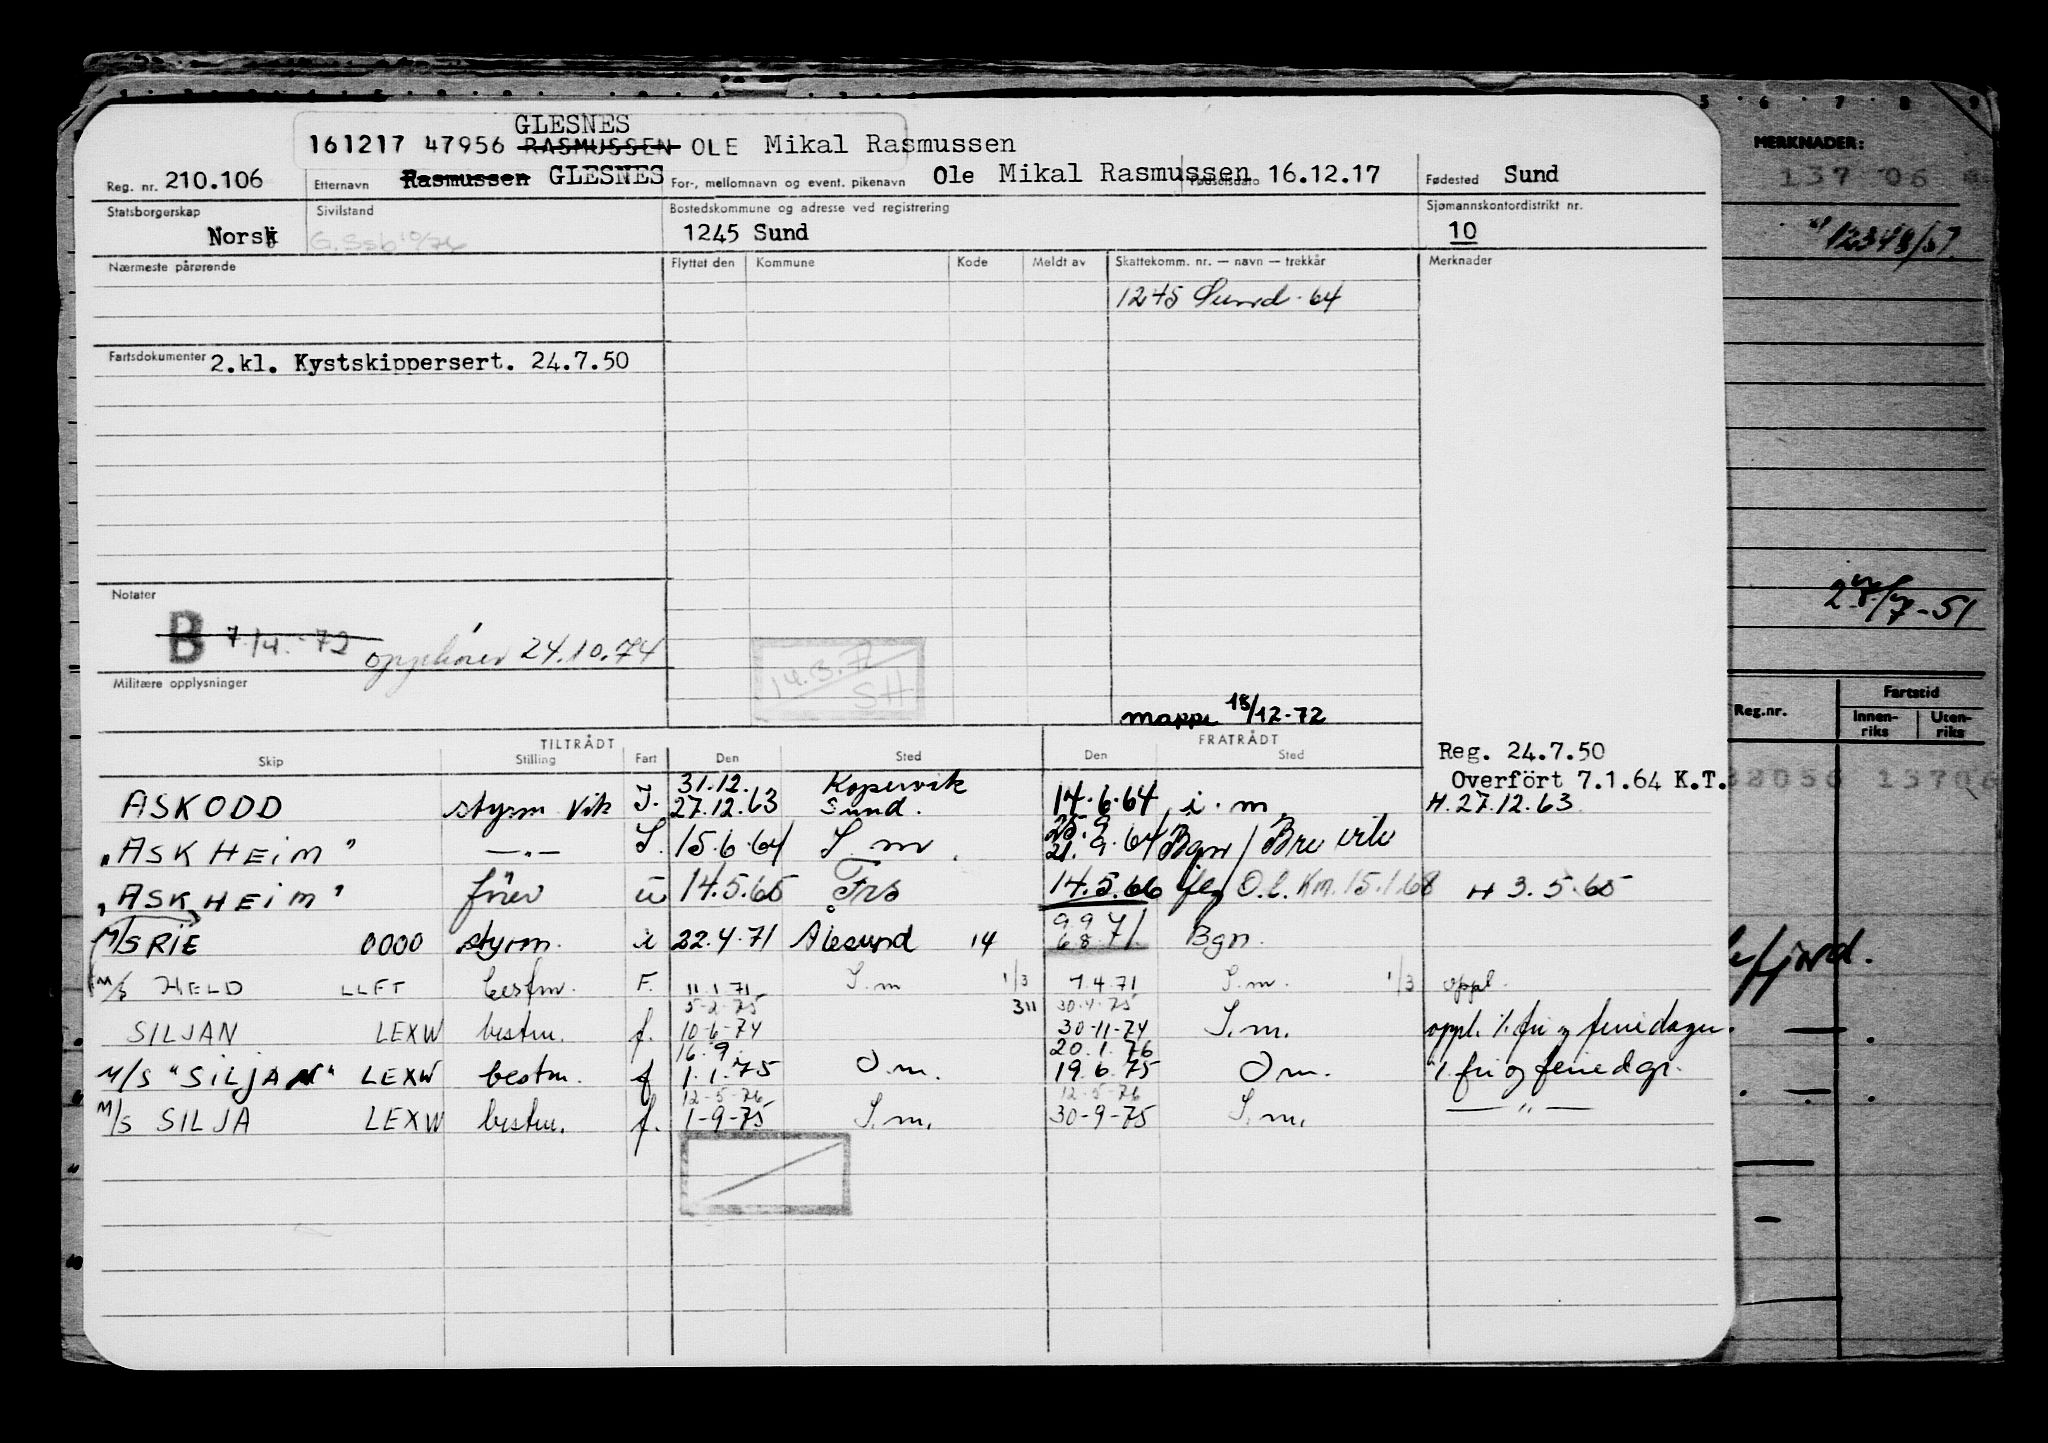 GLESNES
161217 47956 RASMUSSEN OLE Mikal Rasmussen
Reg. nr. 210.106 Etternavn Rasmussen GLESNES For-, mellomnavn og event. pikenavn Ole Mikal Rasmussen Fødselsdato 16.12.17 Fødested Sund
Statsborgerskap Sivilstand Bostedskommune og adresse ved registrering Sjømannskontordistrikt nr.
Norsk G.Ssb 10/76 1245 Sund 10
Nærmeste pårørende Flyttet den Kommune Kode Meldt av Skattekomm. nr. — navn — trekkår Merknader
1245 Sund 64
Fartsdokumenter 2.kl. Kystskippersert. 24.7.50
Notater
B 7/4.-72 opphører 24.10.74
14.3.72
SH
Militære opplysninger
mappe 18/12-72
TILTRÅDT FRATRÅDT
Skip Stilling Fart Den Sted Den Sted
Reg. 24.7.50
Overført 7.1.64 K.T.
31.12. Kopervik
ASKODD styrm vik I. 27.12.63 Sund. 14.6.64 i.m H.27.12.63
25.9
"ASKHEIM" —"— I. 15.6.64 I.m. 21.9.64 Bgn / Brevik
"ASKHEIM" fører u 14.5.65 Frs 14.5.66 O.l. Km. 15.1.68 H 3.5.65
9 9 71
M/S RIE 0000 styrm. i 22.4.71 Ålesund 14 6 8 71 Bgn.
M/S HELD LLFT bestm. F. 11.1.71 I.m 1/3 7.4.71 I.m. 1/3 oppl.
5-2-75 311 30.4.75
SILJAN LEXW bestm. f. 10-6-74 30-11-74 I.m. oppl. %. fri og feriedager.
16.9. 20.1.76
M/S "SILJAN" LEXW bestm. f 1.1.75 I m. 19.6.75 I m. %. fri og feriedgr.
12-5-76 12-5-76
M/S SILJA LEXW bestm. f. 1-9-75 I.m. 30-9-75 I.m. —"—
MERKNADER:
137 06
12348/51
27/7-51
Reg.nr. Fartstid
Innen-riks Uten-riks
13706